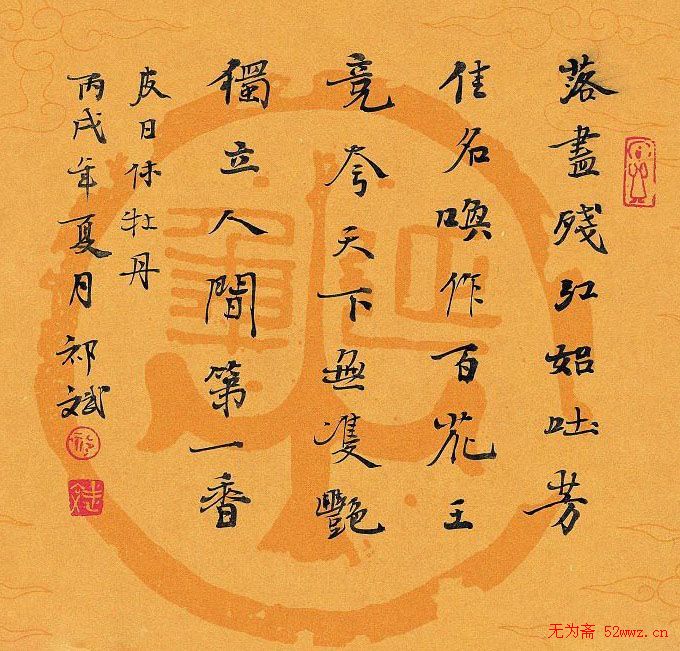 落盡殘红始吐芳
佳名喚作百花王
竞夸天下無雙艷
獨立人間第一香
皮日休牡丹
丙戌年夏月祁斌
无为斋 52wwz.cn